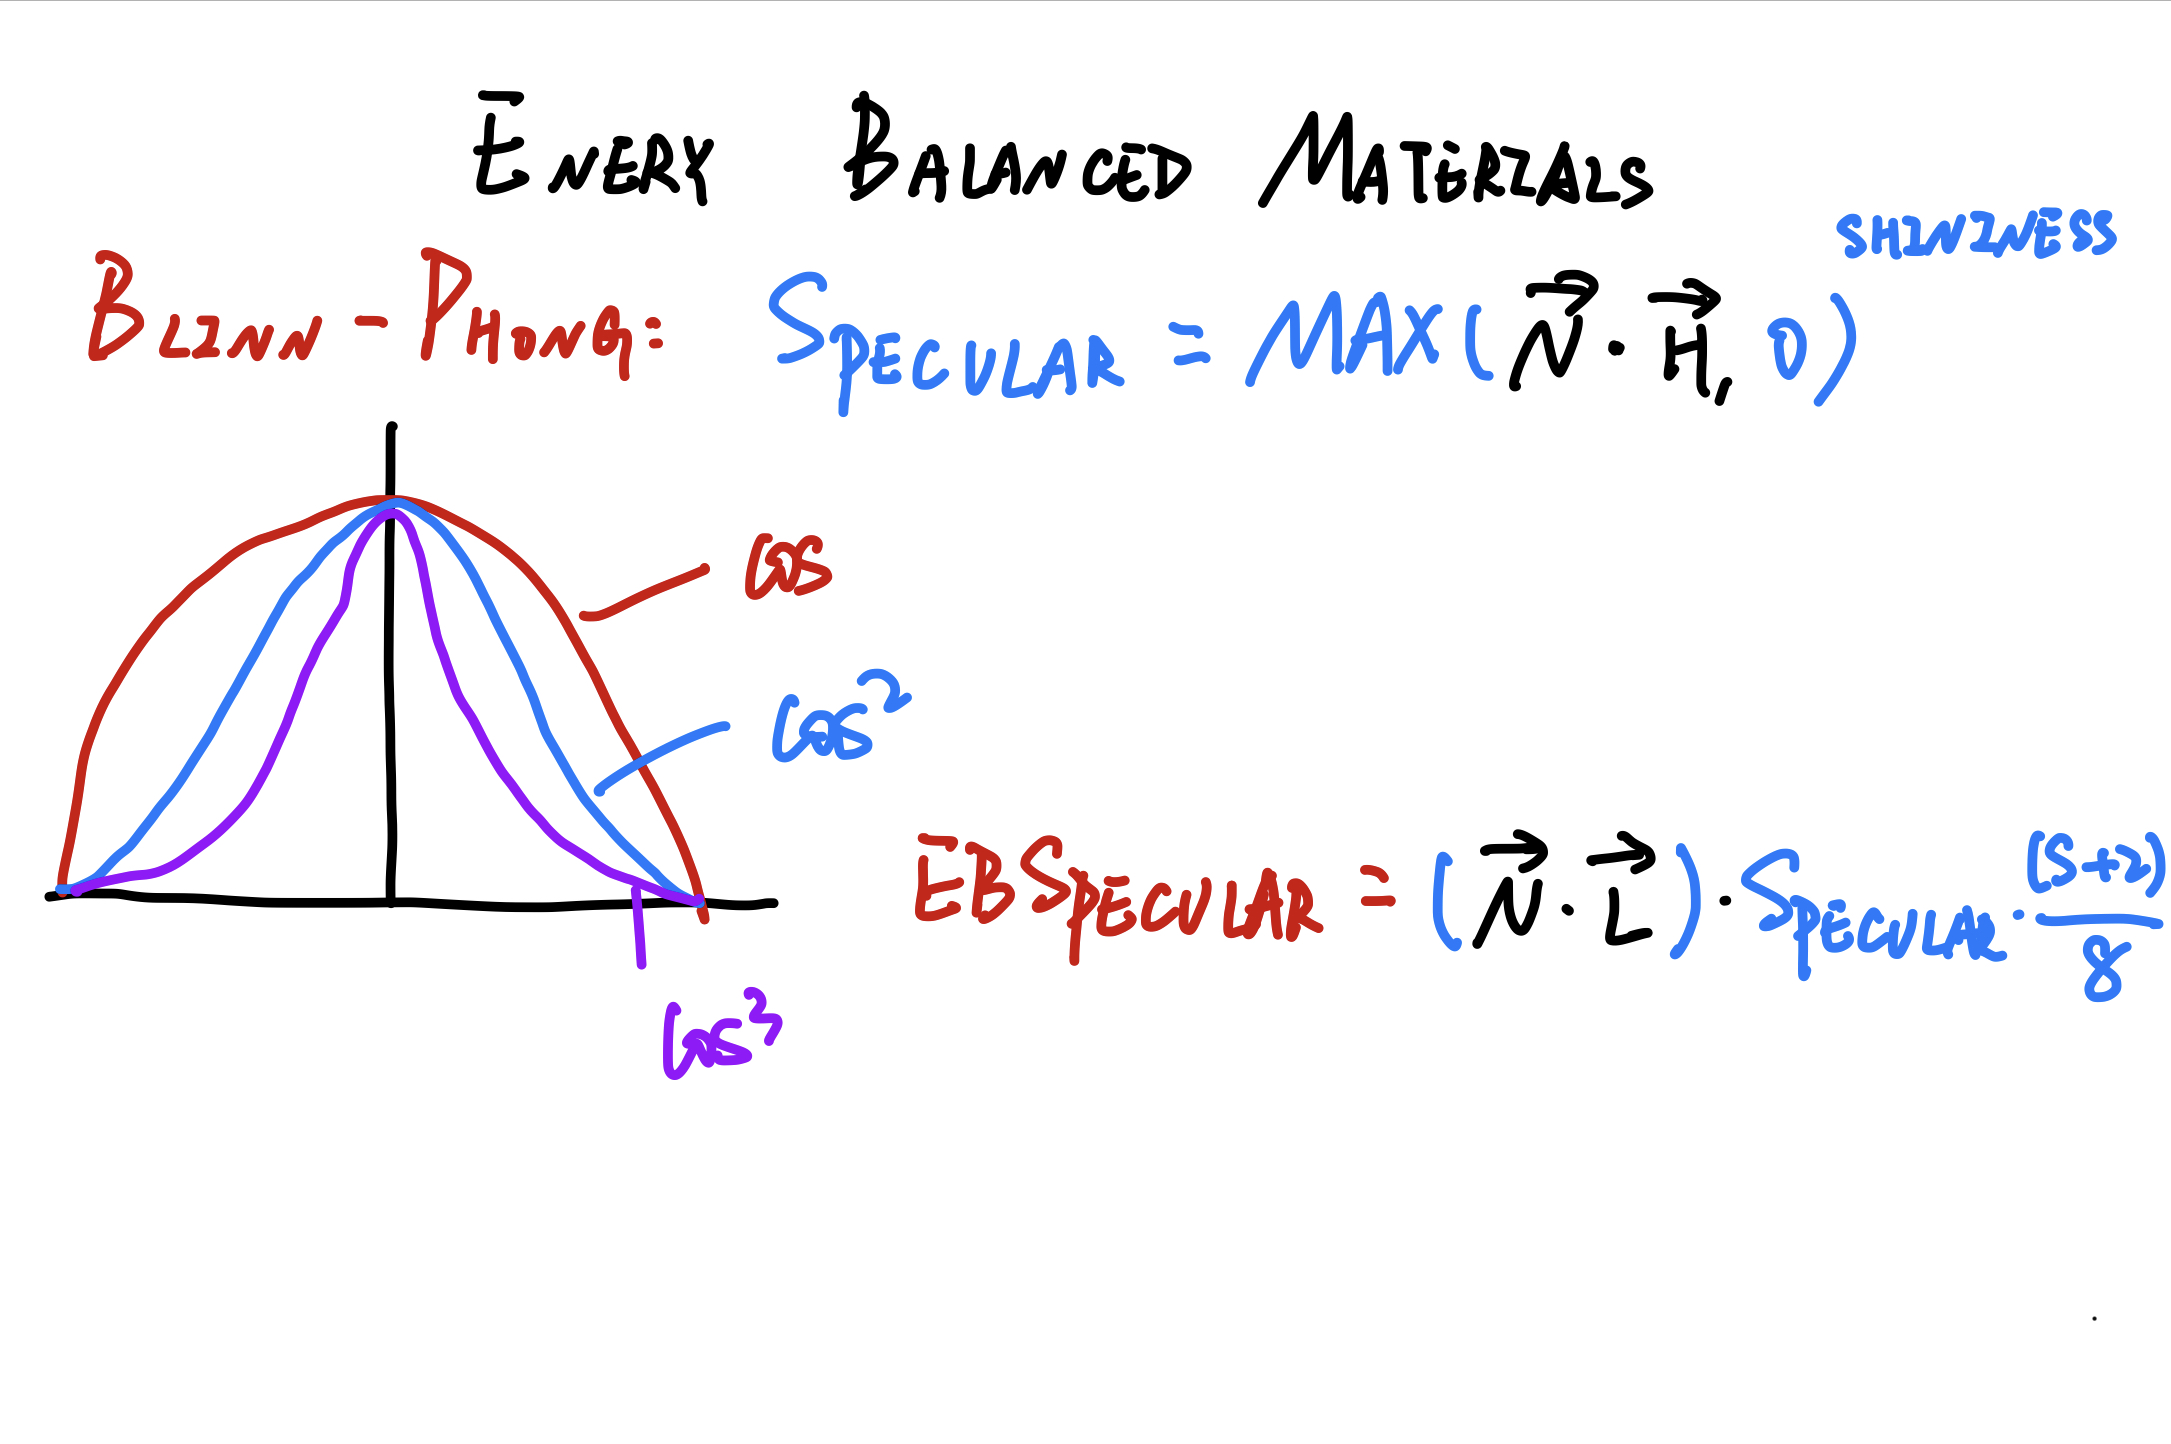 ENERY BALANCED MATERIALS
BLINN-PHONG: SPECULAR = MAX(N⃗ · H⃗, 0)^SHININESS
COS
COS²
EBSPECULAR = (N⃗ · L⃗) · SPECULAR · (S+2)/8
COS³